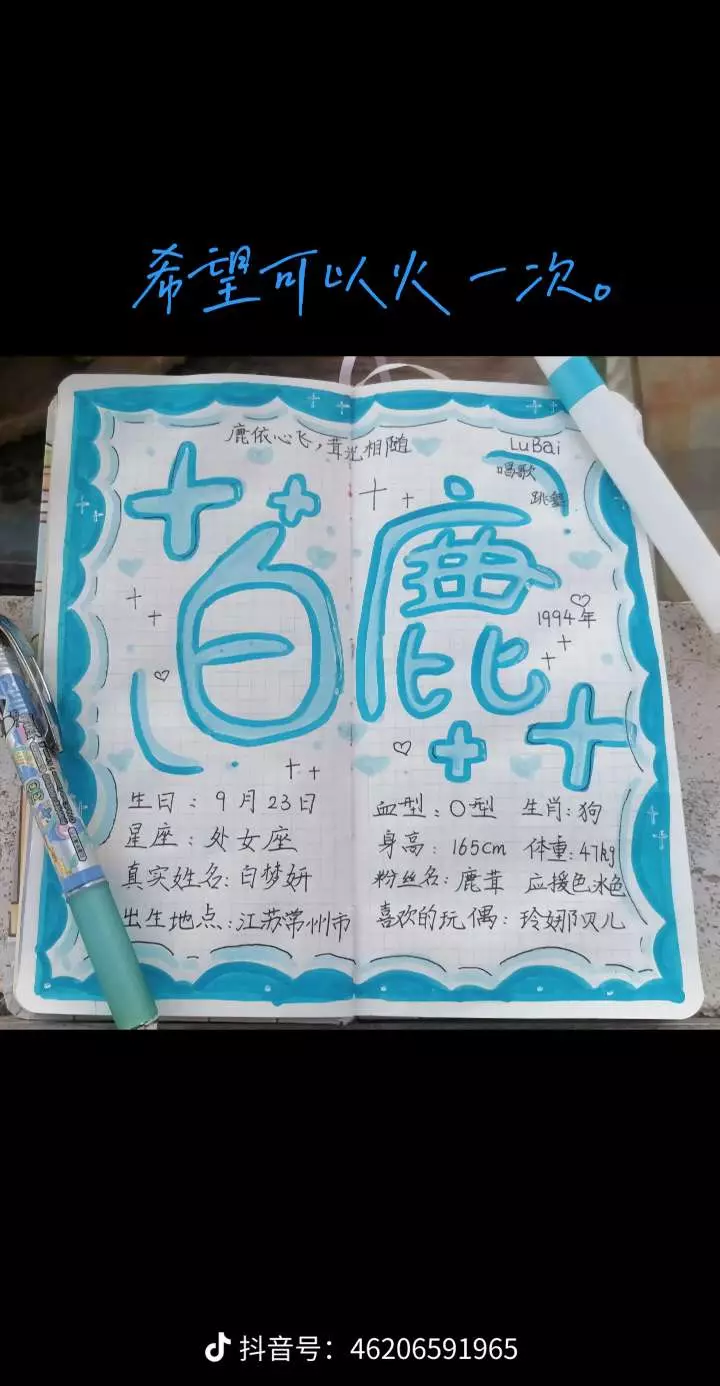 希望可以火一次。
鹿依心飞，茸光相随
LuBai
唱歌
跳舞
白鹿
1994年
生日：9月23日
星座：处女座
真实姓名：白梦妍
出生地点：江苏常州市
血型：O型 生肖：狗
身高：165cm 体重：47kg
粉丝名：鹿茸 应援色水色
喜欢的玩偶：玲娜那贝儿
抖音号：46206591965